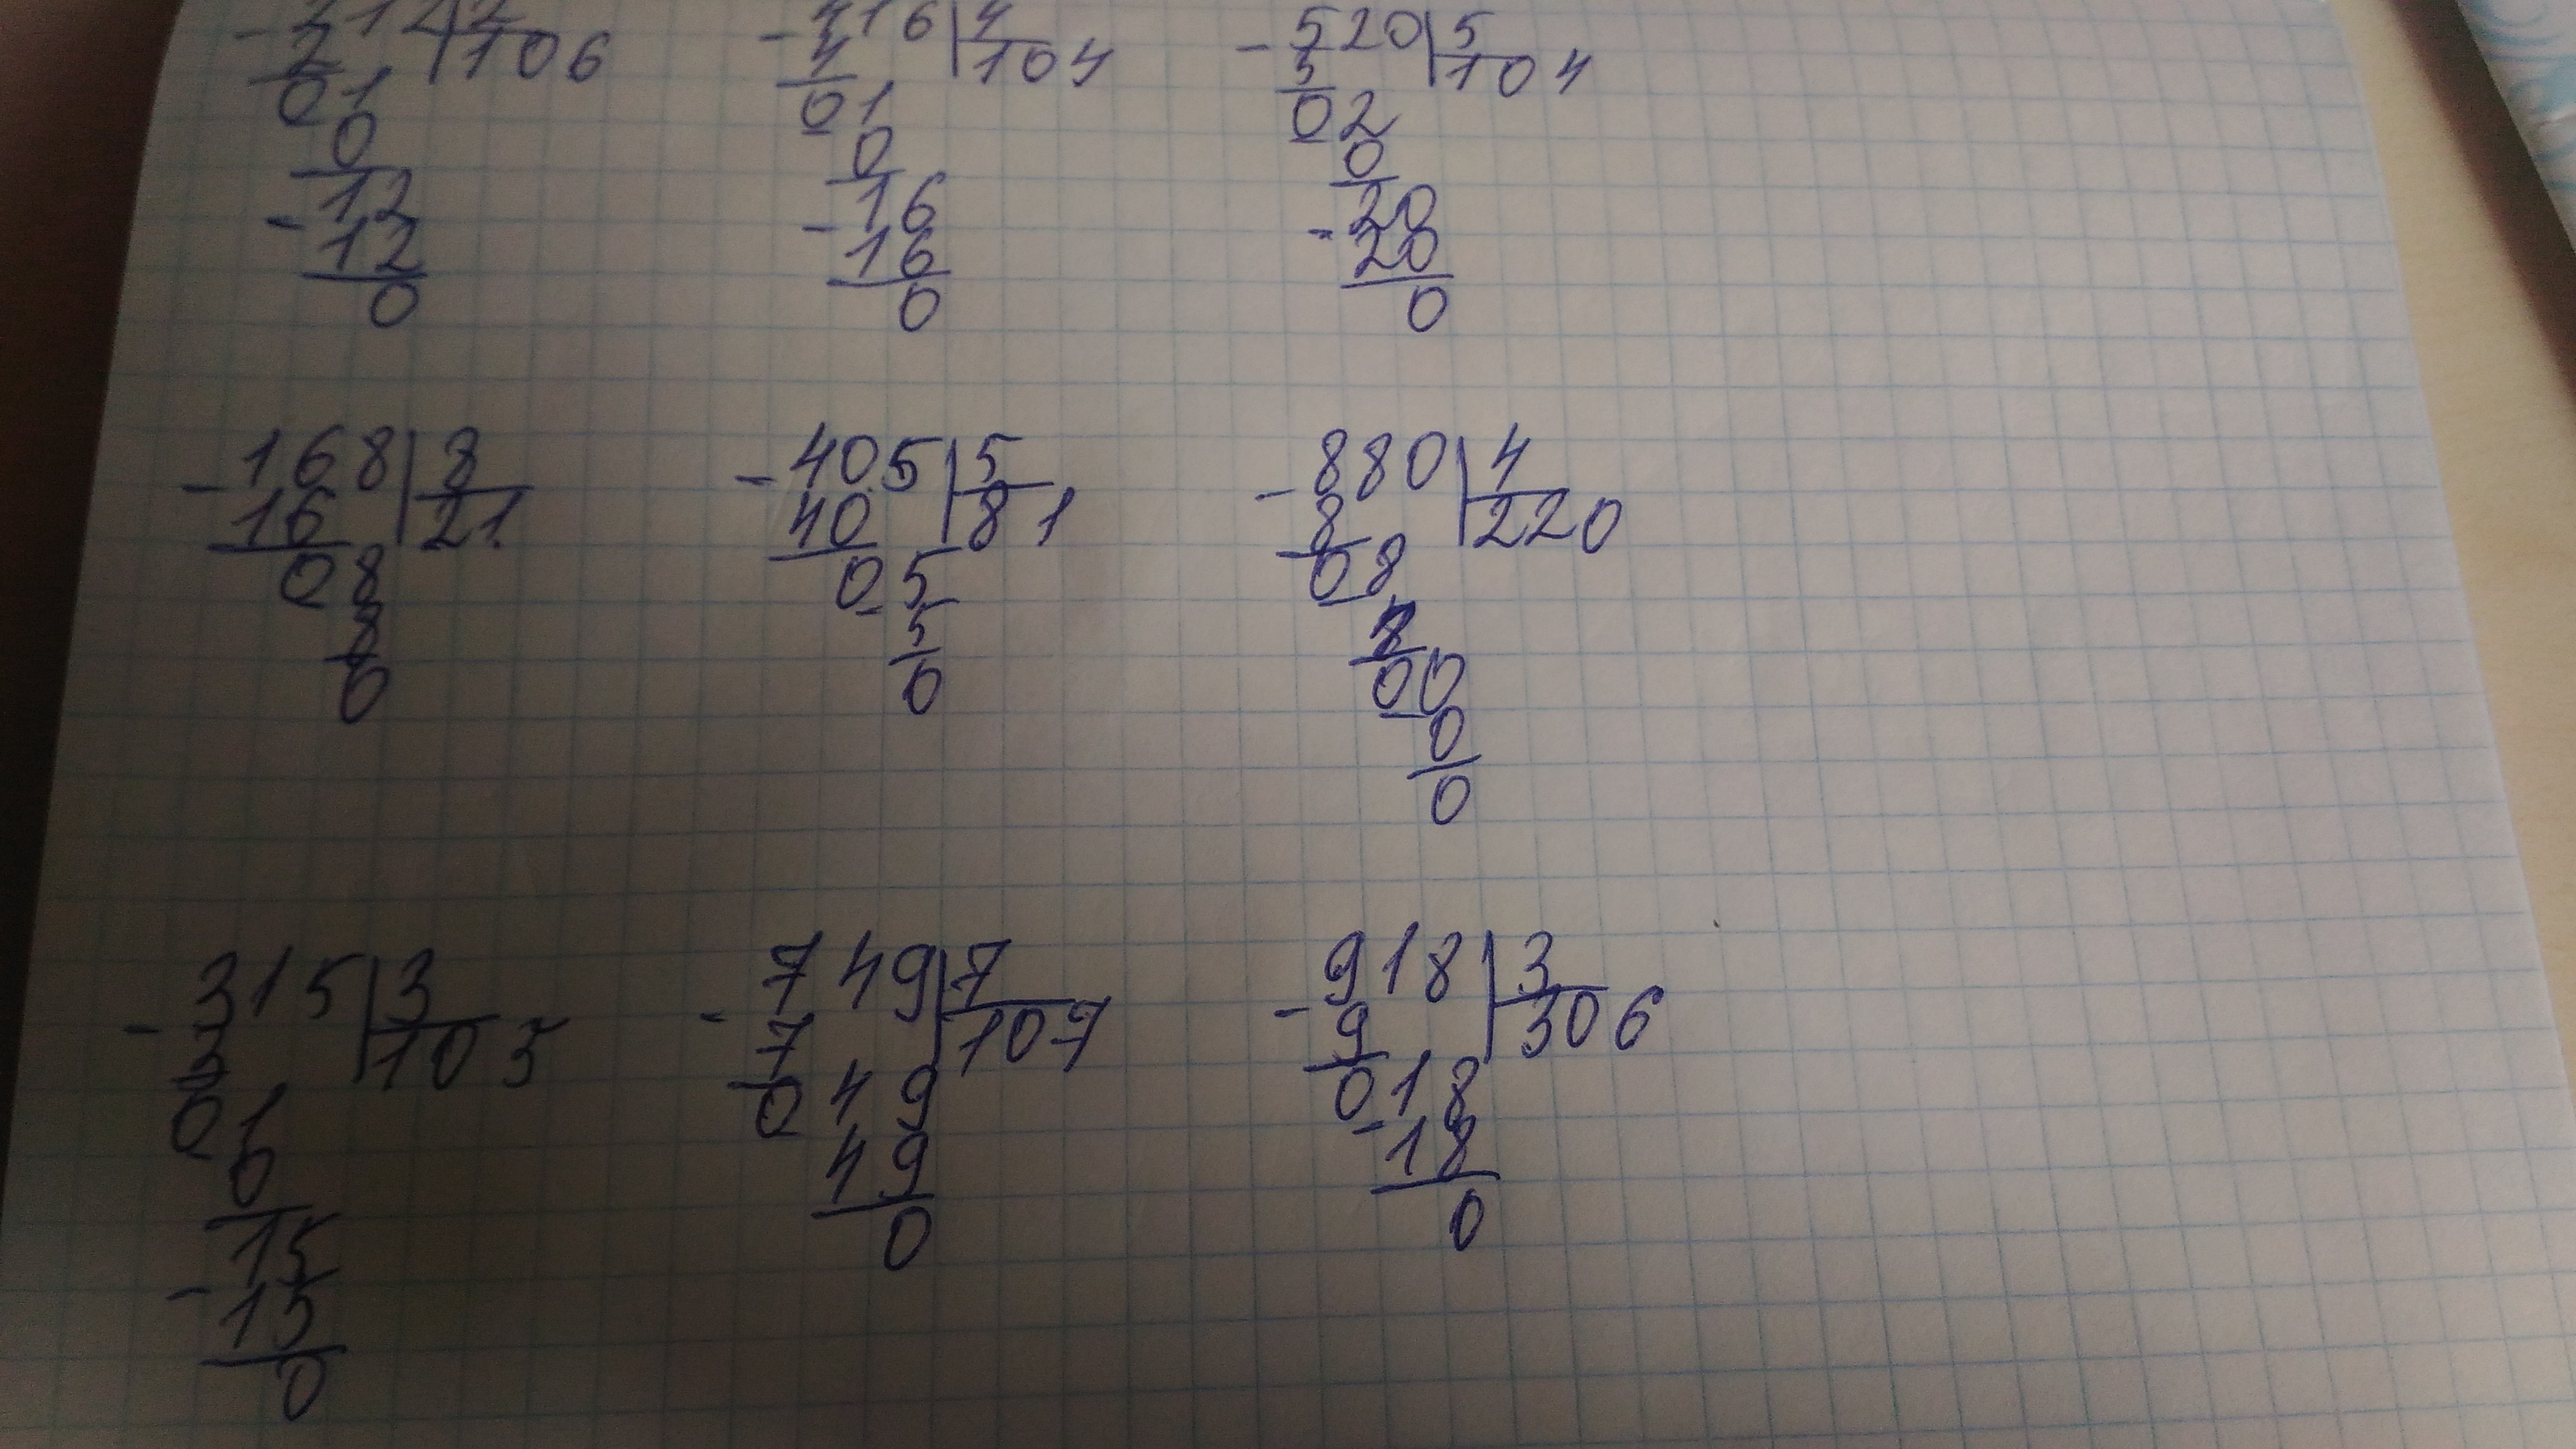 - 212 | 2 - 416 | 4 - 520 | 5
2 106 4 104 5 104
01 01 02
0 0 0
12 16 20
- 12 - 16 - 20
0 0 0
- 168 | 8 - 405 | 5 - 880 | 4
16 21 40 81 8 220
08 05 08
8 5 8
0 0 00
0
0
- 315 | 3 - 749 | 7 - 918 | 3
3 105 7 107 9 306
01 049 018
0 49 - 18
15 0 0
- 15
0